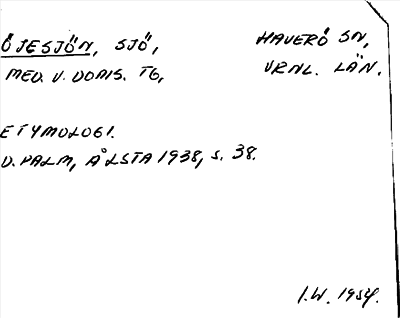 ÖJESJÖN, SJÖ, HAVERÖ SN,
MED. V. DOMS. TG, VRNL. LÄN.
ETYMOLOGI.
D. PALM, ÅLSTA 1938, s. 38.
I.W. 1954.